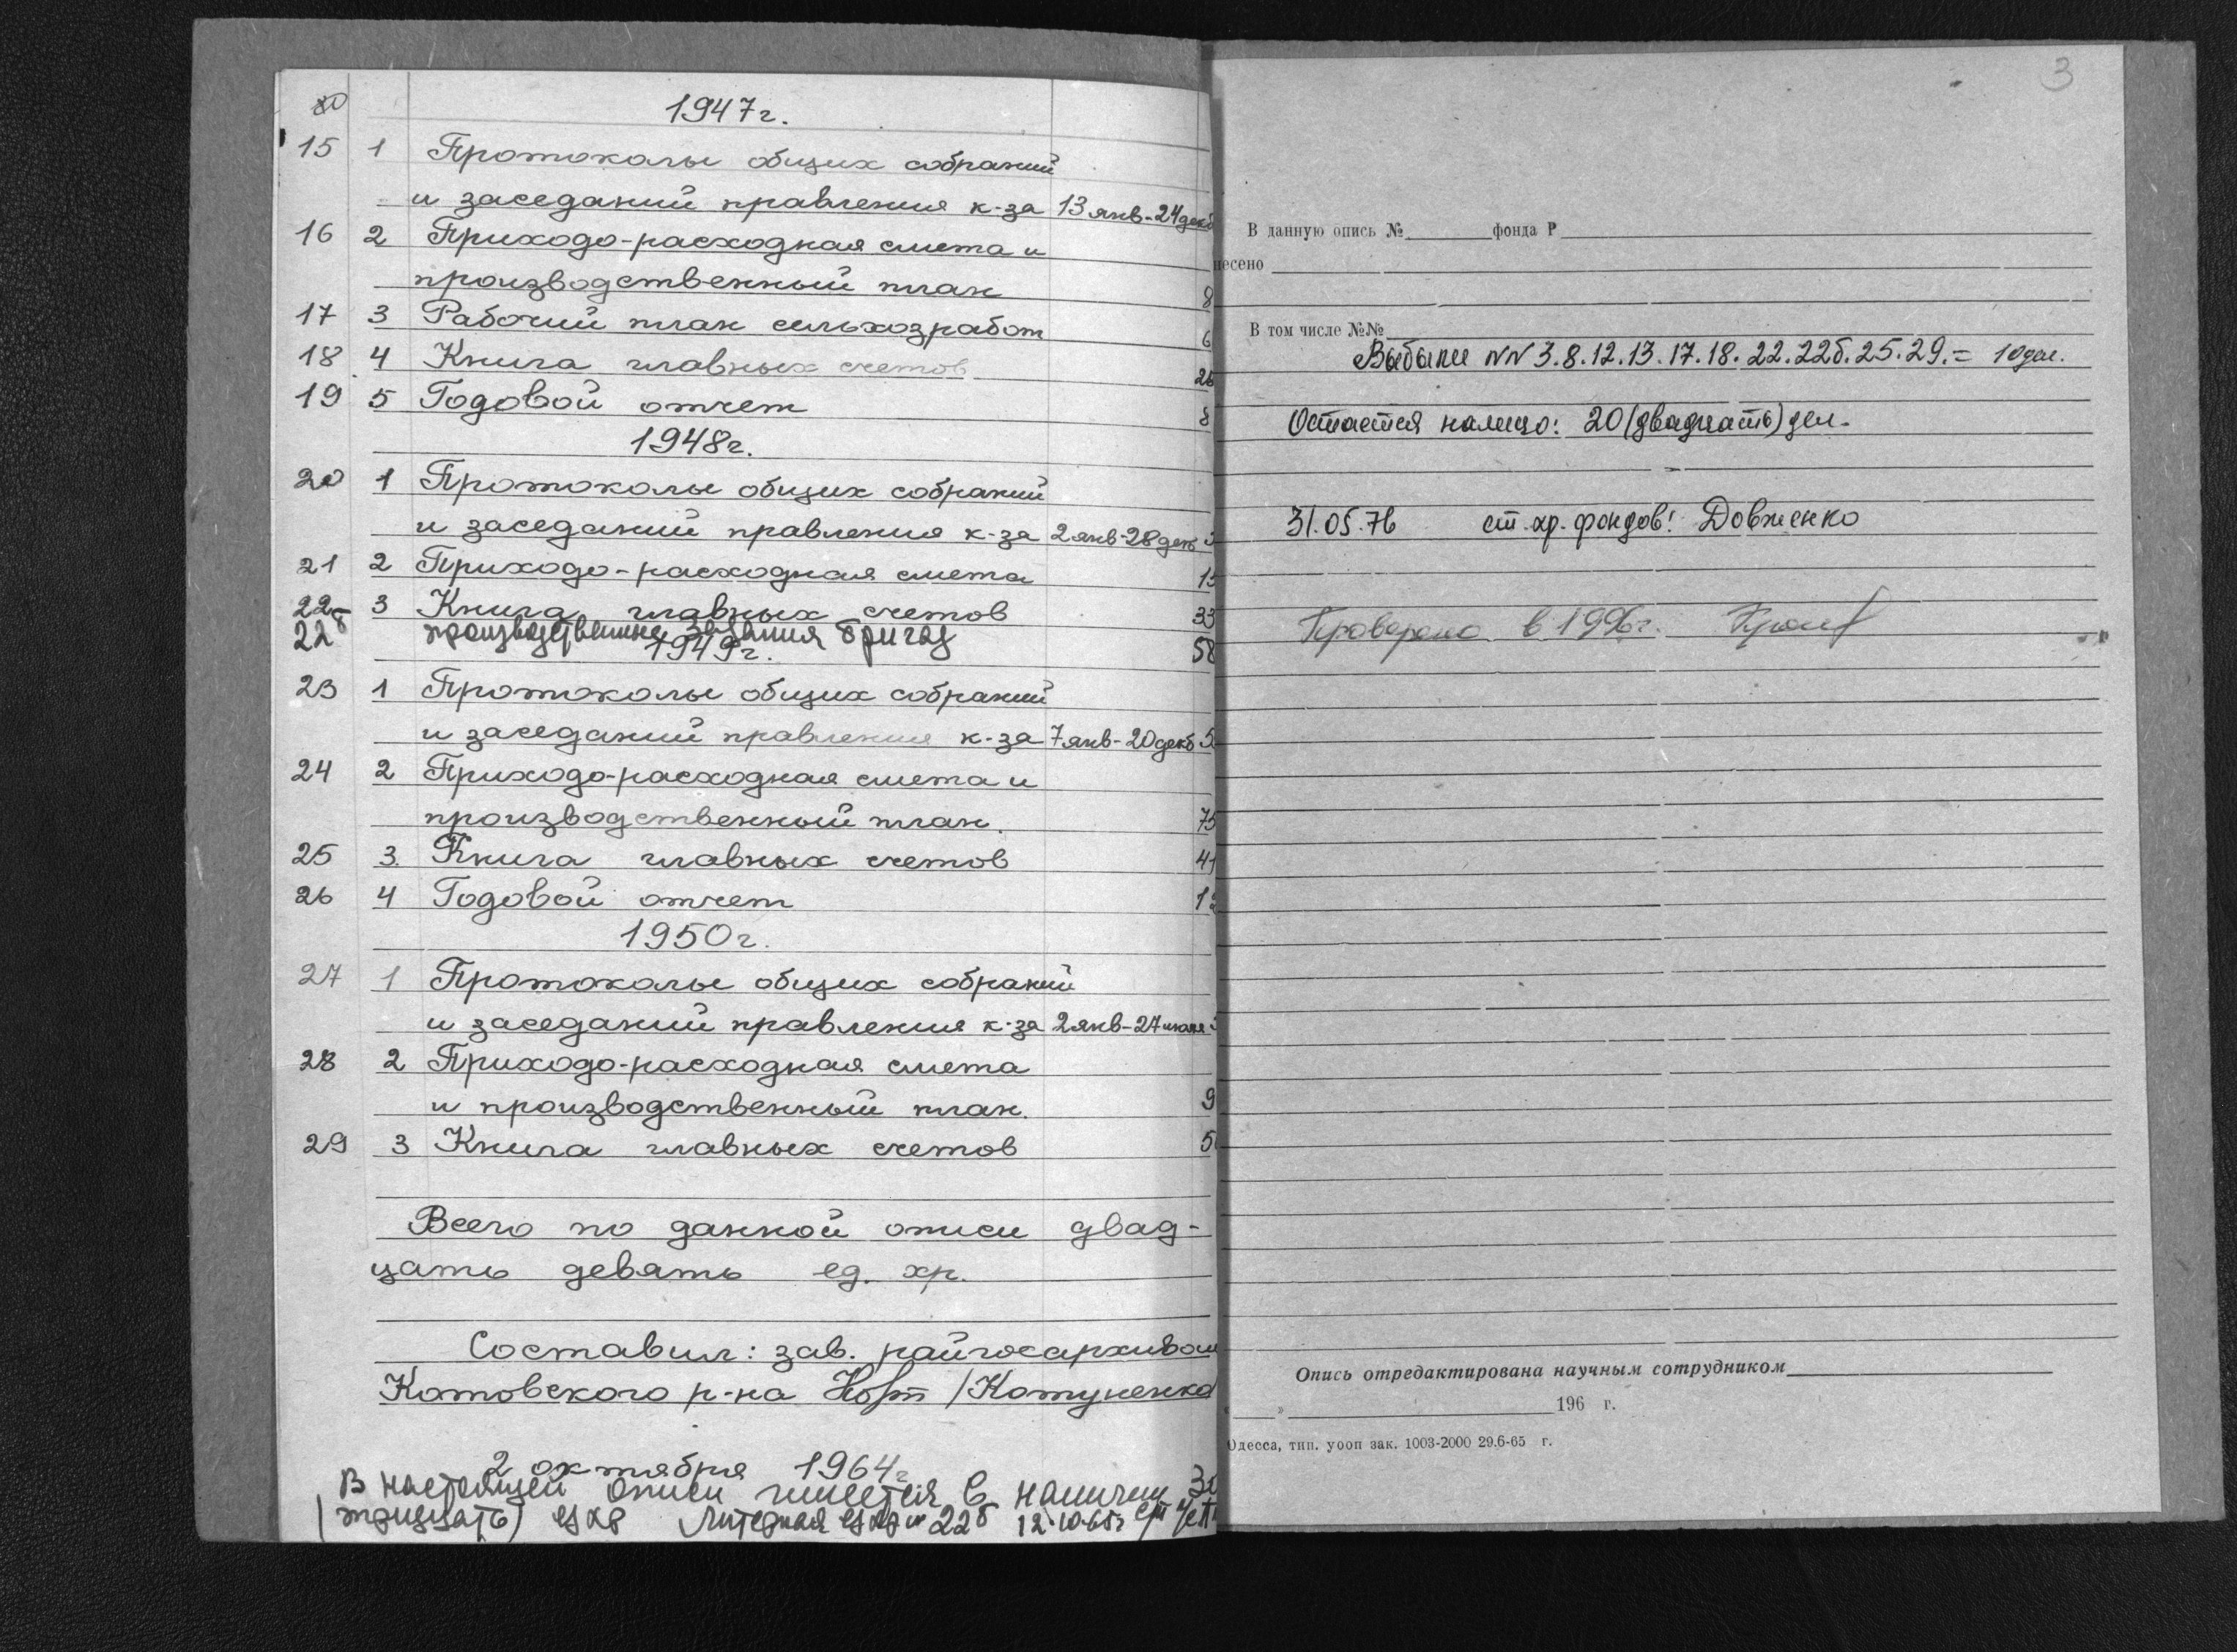 1947г.
15 1 Протоколы общих собраний
и заседаний правления к-за 13 янв-24 декб
16 2 Приходо-расходная смета и
производственный план 8
17 3 Рабочий план сельхозработ 6
18 4 Книга главных счетов 26
19 5 Годовой отчет 8
1948г.
20 1 Протоколы общих собраний
и заседаний правления к-за 2 янв-28 дек
21 2 Приходо-расходная смета 15
22 3 Книга главных счетов 33
22б производственные задания бригад 58
1949г.
23 1 Протоколы общих собраний
и заседаний правления к-за 7 янв-20 декб 5
24 2 Приходо-расходная смета и
производственный план. 75
25 3. Книга главных счетов 41
26 4 Годовой отчет 12
1950г.
27 1 Протоколы общих собраний
и заседаний правления к-за 2 янв-27
28 2 Приходо-расходная смета
и производственный план. 9
29 3 Книга главных счетов 5
Всего по данной описи двад-
цать девять ед. хр.
Составил: зав. райгосархивом
Котовского р-на /Котуненко
2 октября 1964г
В настоящей описи имеется в наличии 30
(тридцать) ед хр Литерная ед хр № 22б 12.10.65г
3
В данную опись № фонда Р
несено
В том числе №№
Выбыли NN 3.8.12.13.17.18.22.22б.25.29.= 10 дел.
Остается налицо: 20 (двадцать) дел.
31.05.76 ст. хр. фондов: Довженко
Проверено в 1996г.
Опись отредактирована научным сотрудником
« » 196 г.
Одесса, тип. уооп зак. 1003-2000 29.6-65 г.